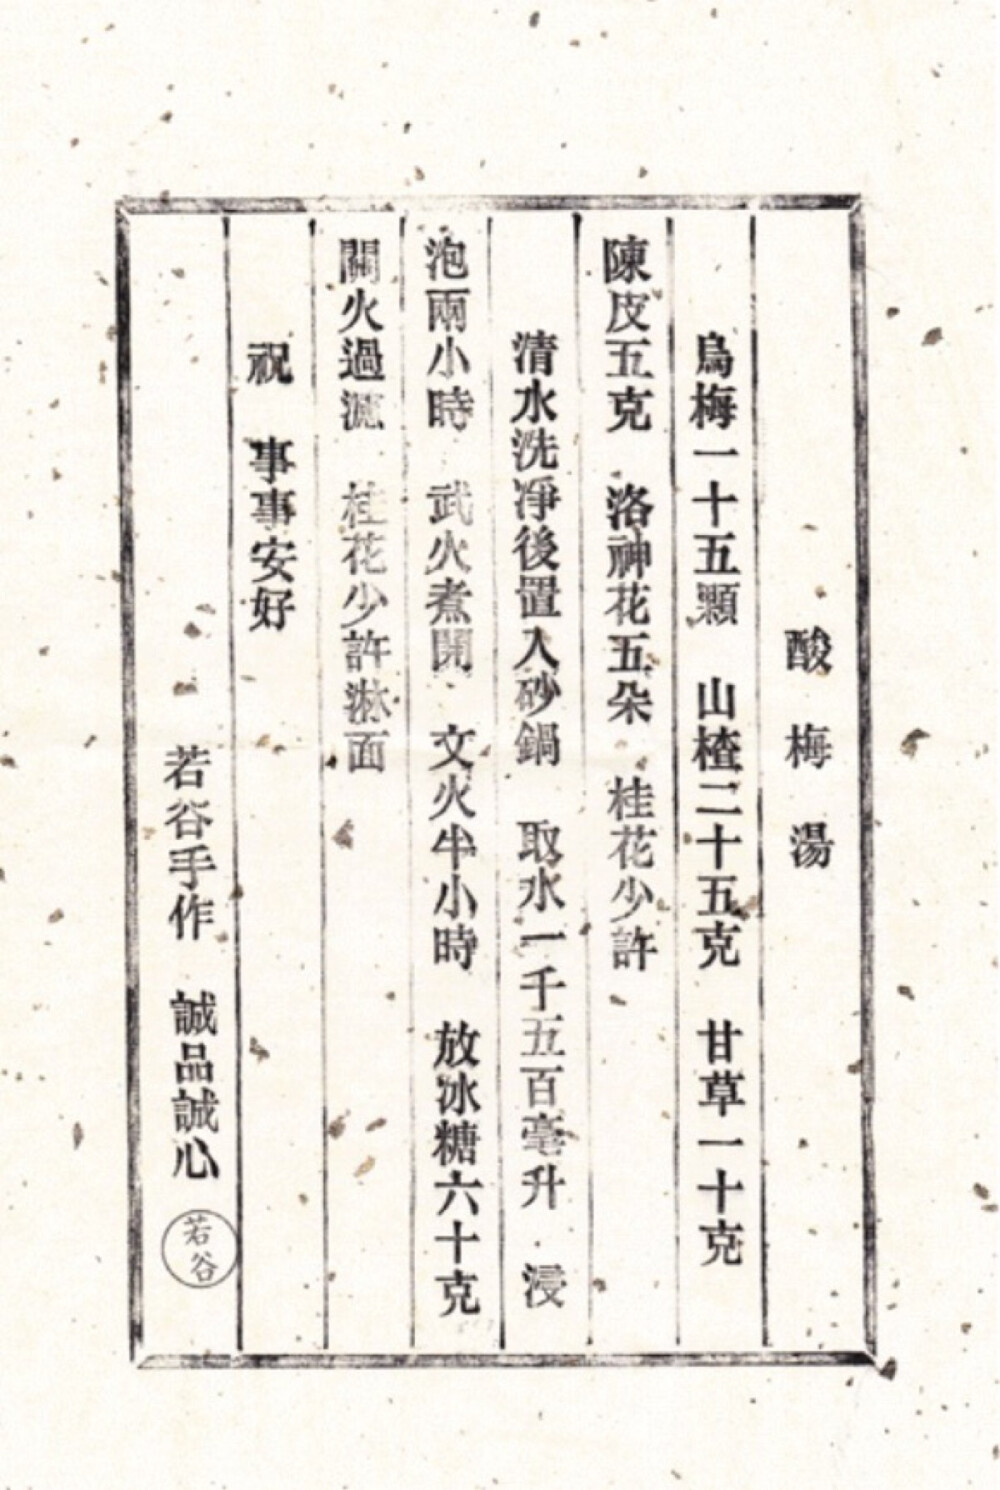 酸梅湯
烏梅一十五顆 山楂二十五克 甘草一十克
陳皮五克 洛神花五朵 桂花少許
清水洗淨後置入砂鍋 取水一千五百毫升 浸
泡兩小時 武火煮開 文火半小時 放冰糖六十克
關火過濾 桂花少許淋面
祝 事事安好
若谷手作 誠品誠心
若谷